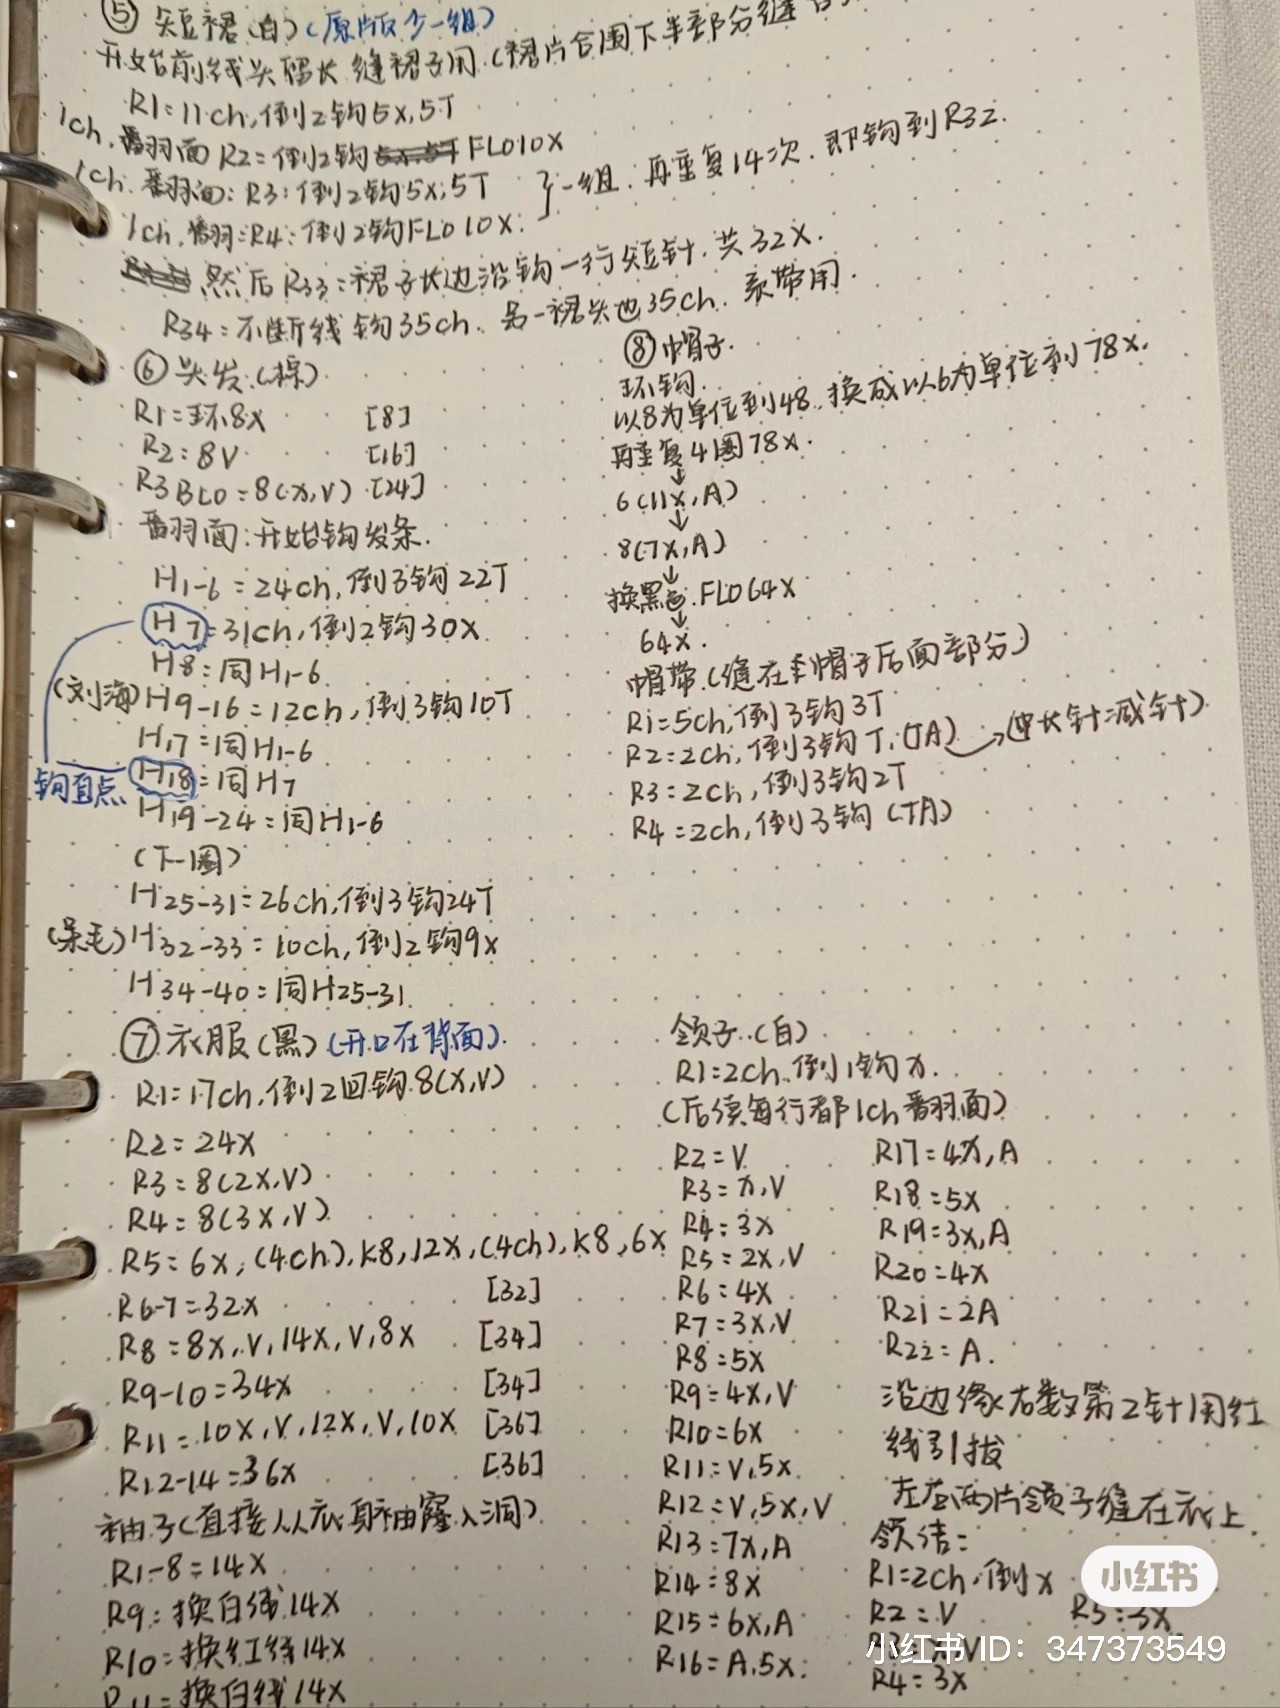 ⑤ 短裙(白)(原版少一组)
开始前线头留长缝裙子用.(裙片合围下半部分缝合
R1=11ch,倒2钩5X,5T
1ch,翻面R2=倒2钩FLO10X
1ch.翻面:R3:倒2钩5X,5T
1ch.翻=R4:倒2钩FLO10X.
}一组.再重复14次.即钩到R32.
然后R33=裙子长边沿钩一行短针.共32X.
R34=不断线钩35ch.另一裙头也35ch.系带用.
⑥头发.(棕)
R1=环8X [8]
R2=8V [16]
R3 BLO=8(X,V) [24]
翻面:开始钩发条.
H1-6=24ch,倒3钩22T
H7=31ch,倒2钩30X
H8:同H1-6
(刘海)H9-16=12ch,倒3钩10T
H17=同H1-6
钩直点 H18=同H7
H19-24=同H1-6
(下一圈)
H25-31=26ch,倒3钩24T
(呆毛)H32-33=10ch,倒2钩9X
H34-40=同H25-31
⑦衣服(黑)(开口在背面)
R1=17ch,倒2回钩8(X,V)
R2=24X
R3=8(2X,V)
R4=8(3X,V)
R5=6X,(4ch),K8,12X,(4ch),K8,6X
R6-7=32X [32]
R8=8X,V,14X,V,8X [34]
R9-10=34X [34]
R11=10X,V,12X,V,10X [36]
R12-14=36X [36]
袖子(直接从衣身袖窿入洞)
R1-8=14X
R9:换白线14X
R10=换红线14X
R11=换白线14X
⑧帽子.
环钩.
以8为单位到48.换成以6为单位到78X.
再重复4圈78X.
↓
6(11X,A)
↓
8(7X,A)
↓
换黑色.FLO64X
↓
64X.
帽带.(缝在帽子后面部分)
R1=5ch,倒3钩3T
R2=2ch,倒3钩T.(TA)→(中长针减针)
R3=2ch,倒3钩2T
R4=2ch,倒3钩(TA)
领子.(白)
R1=2ch.倒1钩X.
(后续每行都1ch翻面)
R2=V
R3=X,V
R4=3X
R5=2X,V
R6=4X
R7=3X,V
R8=5X
R9=4X,V
R10=6X
R11=V,5X
R12=V,5X,V
R13=7X,A
R14=8X
R15=6X,A
R16=A,5X
R17=4X,A
R18=5X
R19=3X,A
R20=4X
R21=2A
R22=A.
沿边缘右数第2针用红
线引拔
左右两片领子缝在衣上.
领结:
R1=2ch,倒X
R2=V
R4=3X
R5=3X
小红书
小红书 ID: 347373549